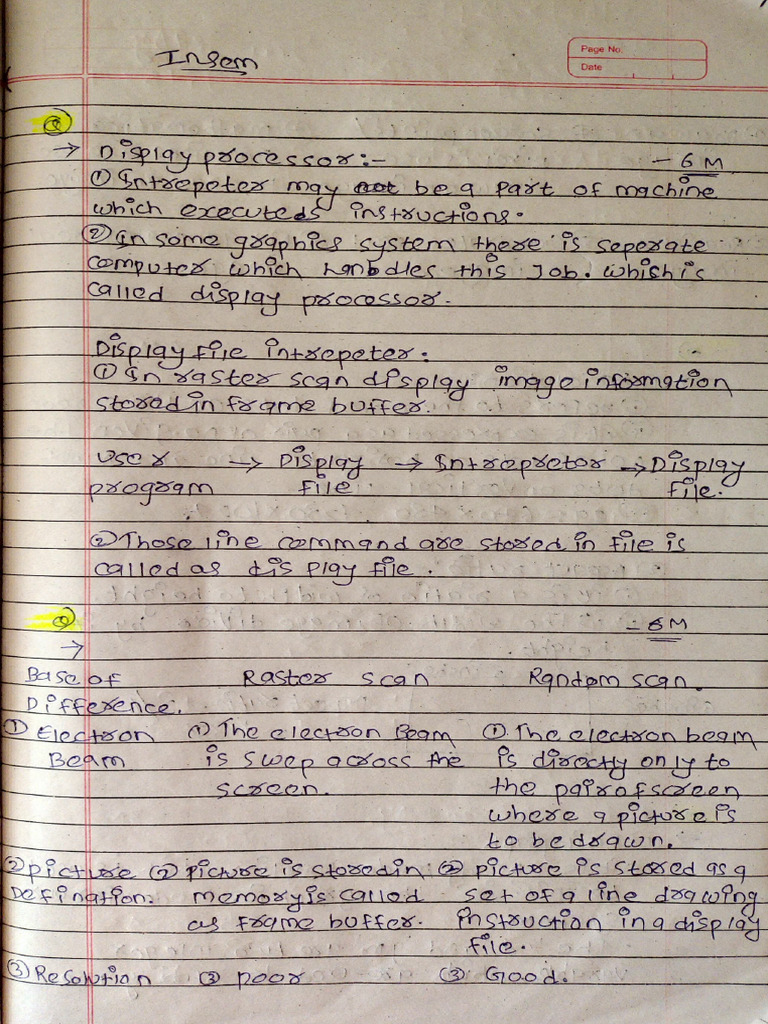 Insem
Page No.
Date
Q
→ Display processor:- - 6 M
① Intrepeter may not be a part of machine
which executeds instructions.
② In some graphics system there is seperate
computer which handles this Job. which is
called display processor.
Display file intrepeter:
① In raster scan display image information
stored in frame buffer.
user → Display → Intrepretor → Display
program file file.
② Those line command are stored in file is
called as display file.
Q - 6 M
→
Base of Raster scan Random scan.
Difference.
① Electron ① The electron Beam ① The electron beam
Beam is swep across the is directly only to
screen. the pair of screen
where a picture is
to be drawn.
② picture ② picture is stored in ② picture is stored as a
Defination. memory is called set of a line drawing
as frame buffer. instruction in a display
file.
③ Resolution ③ poor ③ Good.